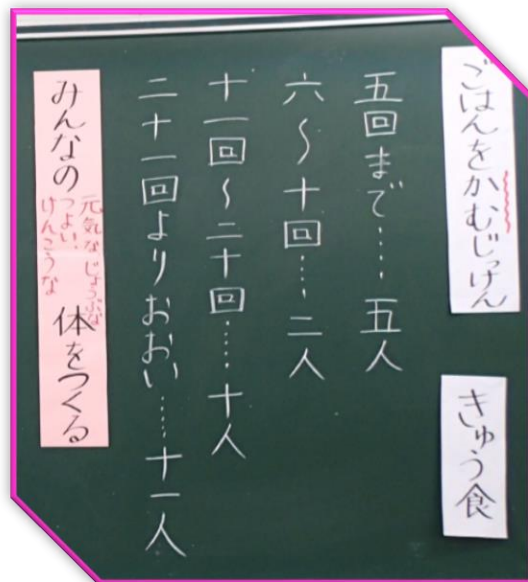 ごはんをかむじっけん
きゅう食
五回まで……五人
六〜十回……二人
十一回〜二十回……十人
二十一回よりおおい……十一人
みんなの
元気な じょうぶな
つよい
けんこうな
体をつくる